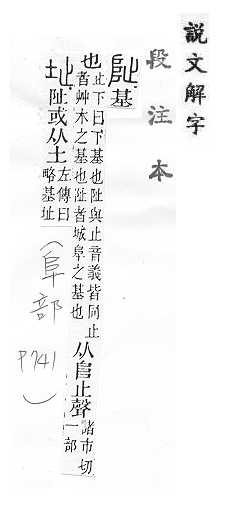 說文解字
段注本
阯基
也
止下曰下基也阯與止音義皆同止
者艸木之基也阯者城阜之基也
从𨸏止聲
諸市切
一部
址阯或从土
左傳曰
略基址
（阜部
P741）